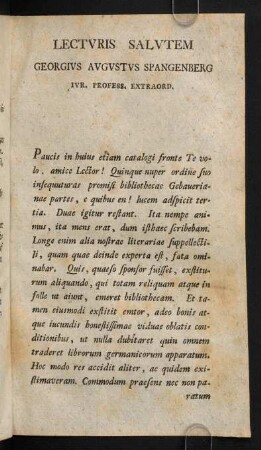 LECTVRIS SALVTEM
GEORGIVS AVGVSTVS SPANGENBERG
IVR. PROFESS. EXTRAORD.
Paucis in huius etiam catalogi fronte Te vo-
lo, amice Lector! Quinque nuper ordine suo
insequuturas promisi bibliothecae Gebaueria-
nae partes, e quibus en! lucem adspicit ter-
tia. Duae igitur restant. Ita nempe ani-
mus, ita mens erat, dum isthaec scribebam.
Longe enim alia nostrae literariae suppellecti-
li, quam quae deinde experta est, fata omi-
nabar. Quis, quaeso sponsor fuisset, exstitu-
rum aliquando, qui totam reliquam atque in
folle ut aiunt, emeret bibliothecam. Et ta-
men eiusmodi exstitit emtor, adeo bonis at-
que iucundis honestissimae viduae oblatis con-
ditionibus, ut nulla dubitaret quin omnem
traderet librorum germanicorum apparatum.
Hoc modo res accidit aliter, ac quidem exi-
stimaveram. Commodum praesens nec non pa-
ratum